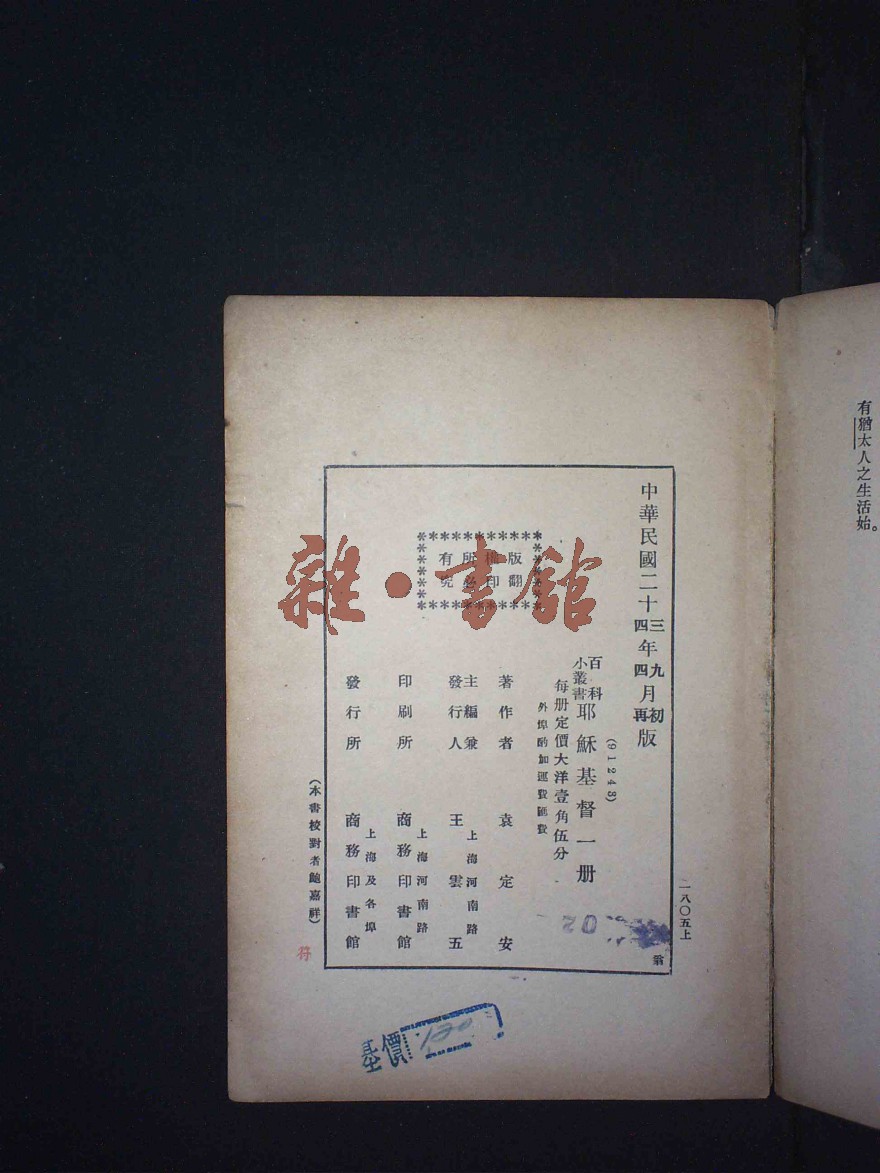 有猶太人之生活始。
中華民國二十三年九月初版
四四再
(91243)
百科小叢書 耶穌基督一册
每册定價大洋壹角伍分
外埠酌加運費匯費
版權所有
翻印必究
著作者 袁定安
主編兼發行人 王雲五
上海河南路
印刷所 商務印書館
上海河南路
發行所 商務印書館
上海及各埠
(本書校對者鮑嘉祥)
一八〇五上
翁
02
符
基價 120
雜·書館